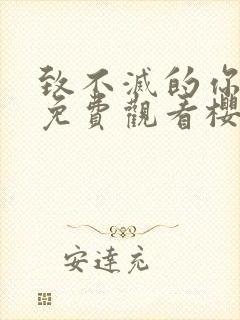 致不滅的你
免費觀看櫻
安達充